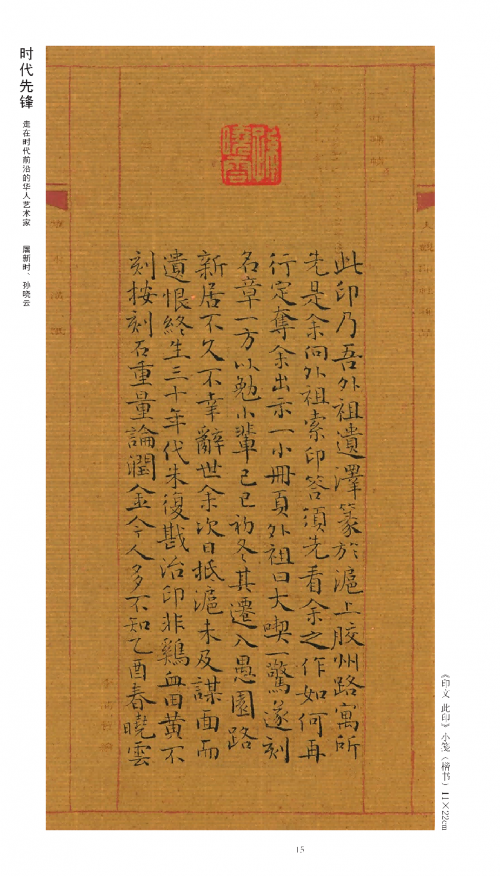 时代先锋
走在时代前沿的华人艺术家
屠新时、孙晓云
此印乃吾外祖遺澤篆於滬上胶州路寓所
先是余向外祖索印答須先看余之作如何再
行定奪余出示一小冊頁外祖曰大喫一驚遂刻
名章一方以勉小輩己巳初冬其遷入愚園路
新居不久不幸辭世余次日抵滬未及謀面而
遺恨終生三十年代朱復戡治印非鷄血田黄不
刻按刻石重量論潤金今人多不知乙酉春曉雲
《印文 此印》小笺（楷书）11×22cm
15